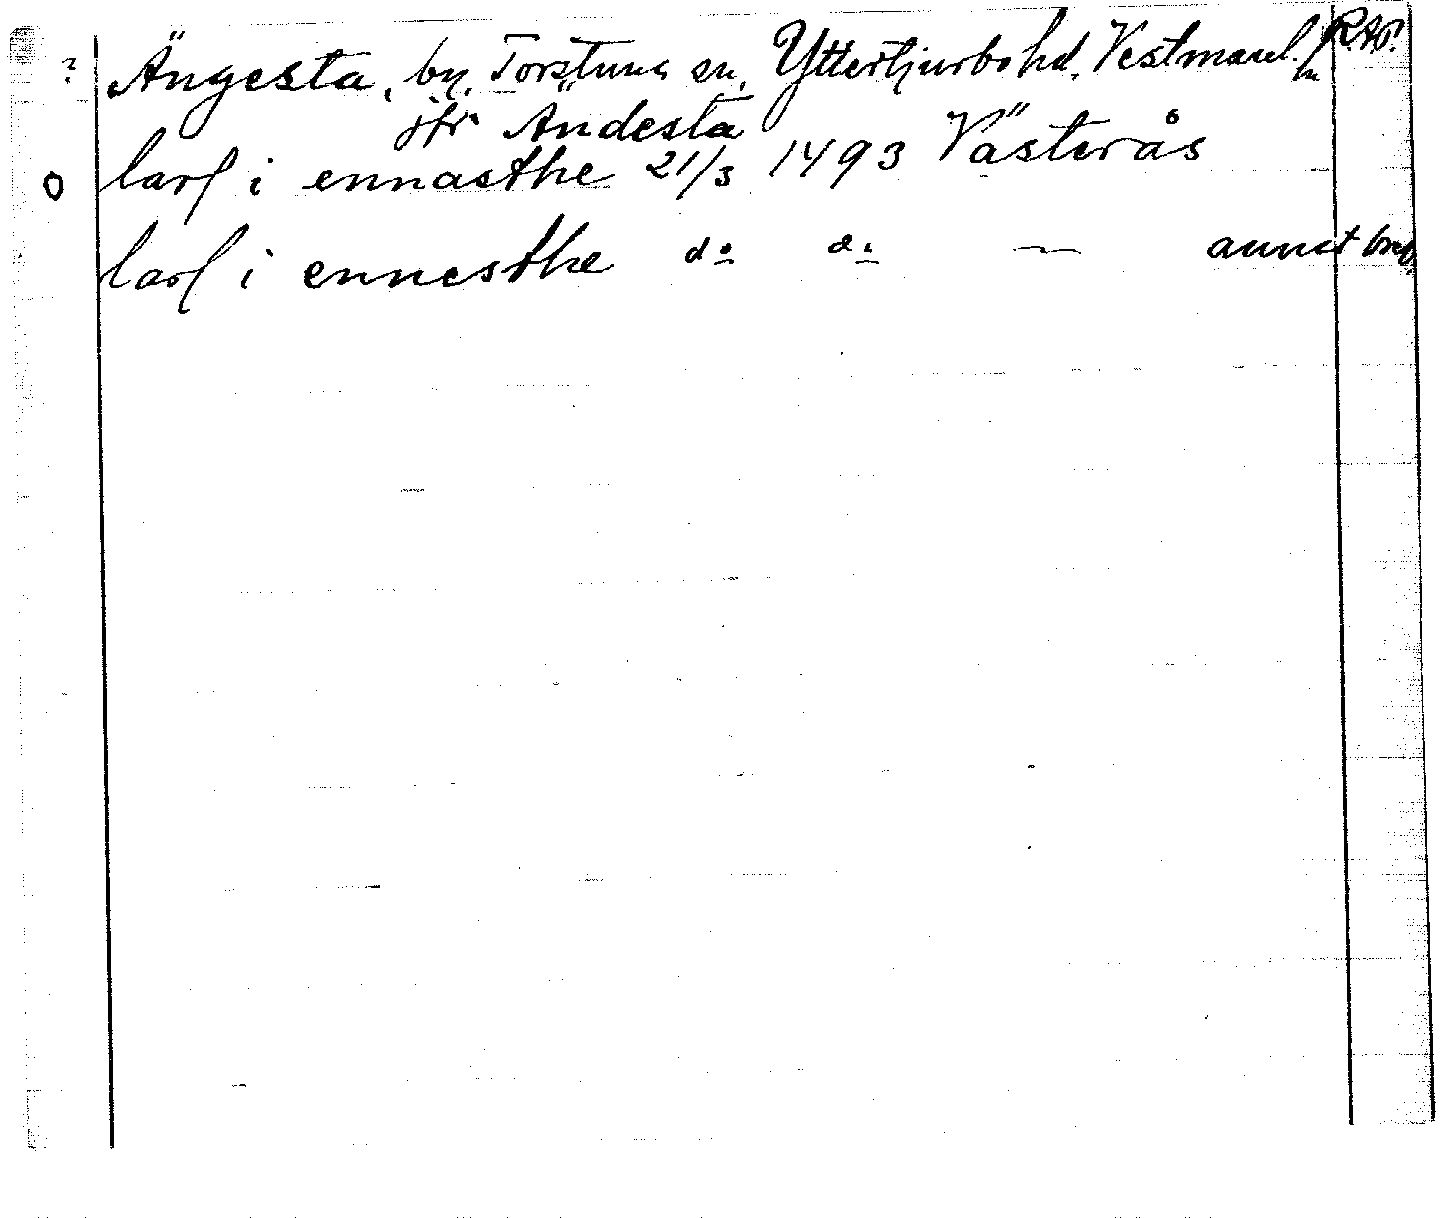 ? Ängesta, by, Torstuna sn, Yttertjurbo hd, Vestmanl. ln R.A.P.
jfr Ändesta
O larſ i ennasthe 21/3 1493 Västerås
larſ i ennesthe do do — annat brev